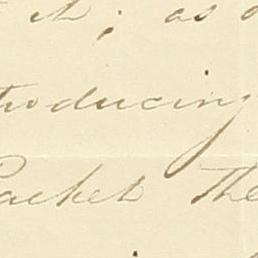 it; as
troducing
Packet The